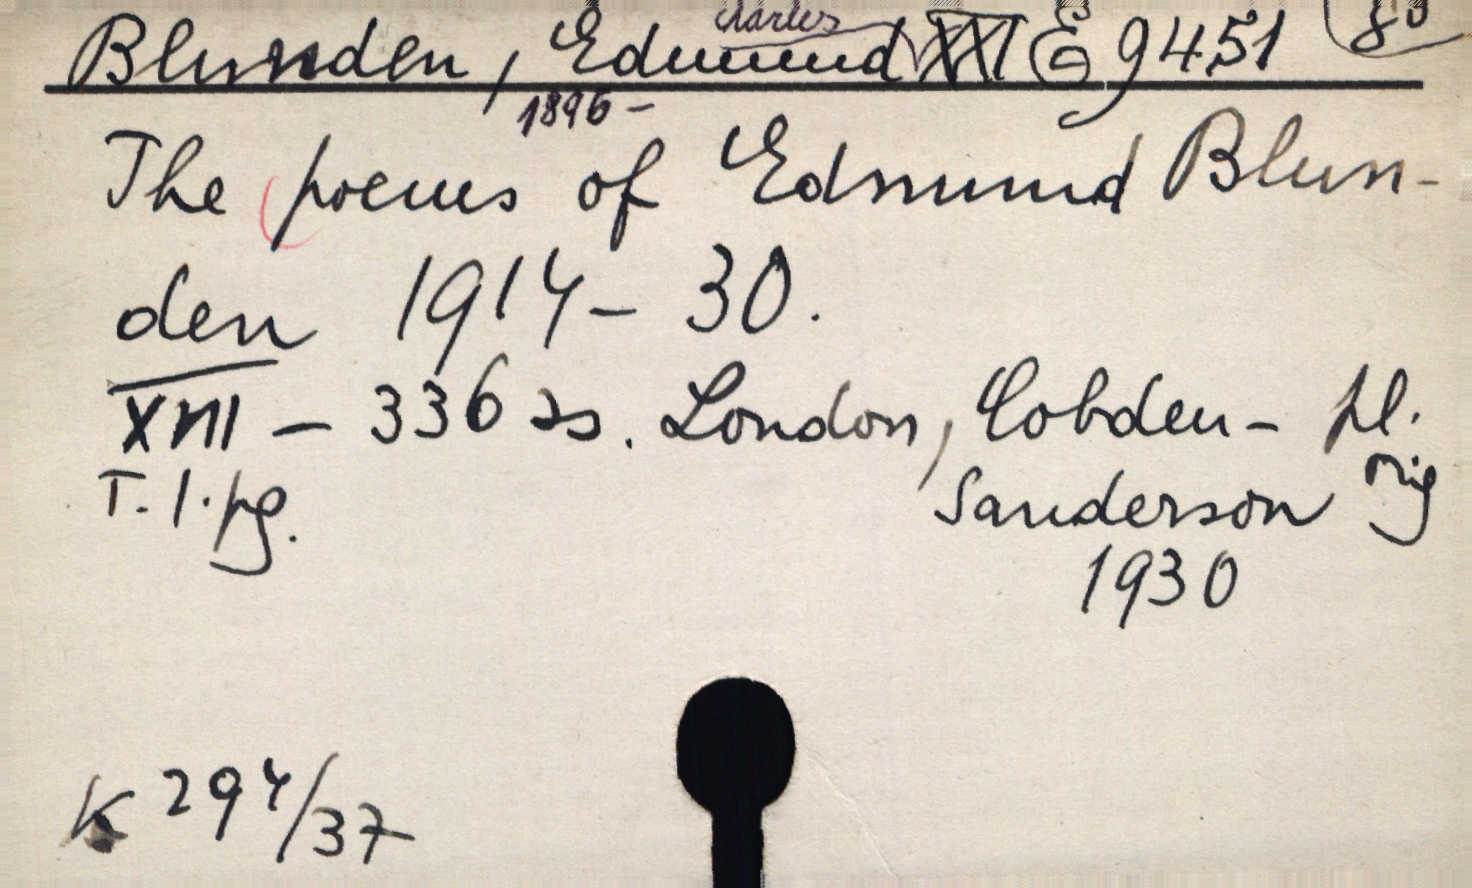 Blunden, Edmund Charles XXI E 9451 8°
1896 -
The poems of Edmund Blun-
den 1914 - 30.
XVIII - 336 ss. London, Cobden- pl.
T. 1. pg. Sanderson orig
1930
K 294/37